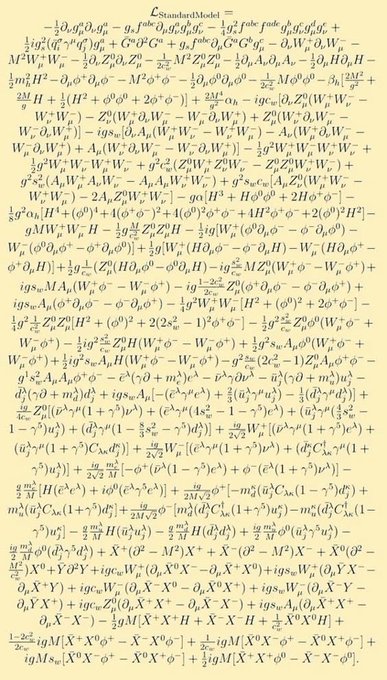 ℒ_StandardModel =
−½∂_νg^a_μ∂_νg^a_μ − g_sf^{abc}∂_μg^a_νg^b_μg^c_ν − ¼g²_sf^{abc}f^{ade}g^b_μg^c_νg^d_μg^e_ν +
½ig²_s(q̄^σ_iγ^μq^σ_j)g^a_μ + Ḡ^a∂²G^a + g_sf^{abc}∂_μḠ^aG^bg^c_μ − ∂_νW⁺_μ∂_νW⁻_μ −
M²W⁺_μW⁻_μ − ½∂_νZ⁰_μ∂_νZ⁰_μ − 1/(2c²_w) M²Z⁰_μZ⁰_μ − ½∂_μA_ν∂_μA_ν − ½∂_μH∂_μH −
½m²_hH² − ∂_μφ⁺∂_μφ⁻ − M²φ⁺φ⁻ − ½∂_μφ⁰∂_μφ⁰ − 1/(2c²_w) Mφ⁰φ⁰ − β_h[2M²/g² +
2M/g H + ½(H² + φ⁰φ⁰ + 2φ⁺φ⁻)] + 2M⁴/g² α_h − igc_w[∂_νZ⁰_μ(W⁺_μW⁻_ν −
W⁺_νW⁻_μ) − Z⁰_ν(W⁺_μ∂_νW⁻_μ − W⁻_μ∂_νW⁺_μ) + Z⁰_μ(W⁺_ν∂_νW⁻_μ −
W⁻_ν∂_νW⁺_μ)] − igs_w[∂_νA_μ(W⁺_μW⁻_ν − W⁺_νW⁻_μ) − A_ν(W⁺_μ∂_νW⁻_μ −
W⁻_μ∂_νW⁺_μ) + A_μ(W⁺_ν∂_νW⁻_μ − W⁻_ν∂_νW⁺_μ)] − ½g²W⁺_μW⁻_μW⁺_νW⁻_ν +
½g²W⁺_μW⁻_νW⁺_μW⁻_ν + g²c²_w(Z⁰_μW⁺_μZ⁰_νW⁻_ν − Z⁰_μZ⁰_μW⁺_νW⁻_ν) +
g²s²_w(A_μW⁺_μA_νW⁻_ν − A_μA_μW⁺_νW⁻_ν) + g²s_wc_w[A_μZ⁰_ν(W⁺_μW⁻_ν −
W⁺_νW⁻_μ) − 2A_μZ⁰_μW⁺_νW⁻_ν] − gα[H³ + Hφ⁰φ⁰ + 2Hφ⁺φ⁻] −
⅛g²α_h[H⁴ + (φ⁰)⁴ + 4(φ⁺φ⁻)² + 4(φ⁰)²φ⁺φ⁻ + 4H²φ⁺φ⁻ + 2(φ⁰)²H²] −
gMW⁺_μW⁻_μH − ½g M/c²_w Z⁰_μZ⁰_μH − ½ig[W⁺_μ(φ⁰∂_μφ⁻ − φ⁻∂_μφ⁰) −
W⁻_μ(φ⁰∂_μφ⁺ − φ⁺∂_μφ⁰)] + ½g[W⁺_μ(H∂_μφ⁻ − φ⁻∂_μH) − W⁻_μ(H∂_μφ⁺ −
φ⁺∂_μH)] + ½g 1/c_w (Z⁰_μ(H∂_μφ⁰ − φ⁰∂_μH) − ig s²_w/c_w MZ⁰_μ(W⁺_μφ⁻ − W⁻_μφ⁺) +
igs_wMA_μ(W⁺_μφ⁻ − W⁻_μφ⁺) − ig (1−2c²_w)/(2c_w) Z⁰_μ(φ⁺∂_μφ⁻ − φ⁻∂_μφ⁺) +
igs_wA_μ(φ⁺∂_μφ⁻ − φ⁻∂_μφ⁺) − ¼g²W⁺_μW⁻_μ[H² + (φ⁰)² + 2φ⁺φ⁻] −
¼g² 1/c²_w Z⁰_μZ⁰_μ[H² + (φ⁰)² + 2(2s²_w − 1)²φ⁺φ⁻] − ½g² s²_w/c_w Z⁰_μφ⁰(W⁺_μφ⁻ +
W⁻_μφ⁺) − ½ig² s²_w/c_w Z⁰_μH(W⁺_μφ⁻ − W⁻_μφ⁺) + ½g²s_wA_μφ⁰(W⁺_μφ⁻ +
W⁻_μφ⁺) + ½ig²s_wA_μH(W⁺_μφ⁻ − W⁻_μφ⁺) − g² s_w/c_w (2c²_w − 1)Z⁰_μA_μφ⁺φ⁻ −
g¹s²_wA_μA_μφ⁺φ⁻ − ē^λ(γ∂ + m^λ_e)e^λ − ν̄^λγ∂ν^λ − ū^λ_j(γ∂ + m^λ_u)u^λ_j −
d̄^λ_j(γ∂ + m^λ_d)d^λ_j + igs_wA_μ[−(ē^λγ^μe^λ) + ⅔(ū^λ_jγ^μu^λ_j) − ⅓(d̄^λ_jγ^μd^λ_j)] +
ig/(4c_w) Z⁰_μ[(ν̄^λγ^μ(1 + γ⁵)ν^λ) + (ē^λγ^μ(4s²_w − 1 − γ⁵)e^λ) + (ū^λ_jγ^μ(4/3 s²_w −
1 − γ⁵)u^λ_j) + (d̄^λ_jγ^μ(1 − 8/3 s²_w − γ⁵)d^λ_j)] + ig/(2√2) W⁺_μ[(ν̄^λγ^μ(1 + γ⁵)e^λ) +
(ū^λ_jγ^μ(1 + γ⁵)C_{λκ}d^κ_j)] + ig/(2√2) W⁻_μ[(ē^λγ^μ(1 + γ⁵)ν^λ) + (d̄^κ_jC†_{λκ}γ^μ(1 +
γ⁵)u^λ_j)] + ig/(2√2) m^λ_e/M [−φ⁺(ν̄^λ(1 − γ⁵)e^λ) + φ⁻(ē^λ(1 + γ⁵)ν^λ)] −
g/2 m^λ_e/M [H(ē^λe^λ) + iφ⁰(ē^λγ⁵e^λ)] + ig/(2M√2) φ⁺[−m^κ_d(ū^λ_jC_{λκ}(1 − γ⁵)d^κ_j) +
m^λ_u(ū^λ_jC_{λκ}(1 + γ⁵)d^κ_j] + ig/(2M√2) φ⁻[m^λ_d(d̄^λ_jC†_{λκ}(1 + γ⁵)u^κ_j) − m^κ_u(d̄^λ_jC†_{λκ}(1 −
γ⁵)u^κ_j] − g/2 m^λ_u/M H(ū^λ_ju^λ_j) − g/2 m^λ_d/M H(d̄^λ_jd^λ_j) + ig/2 m^λ_u/M φ⁰(ū^λ_jγ⁵u^λ_j) −
ig/2 m^λ_d/M φ⁰(d̄^λ_jγ⁵d^λ_j) + X̄⁺(∂² − M²)X⁺ + X̄⁻(∂² − M²)X⁻ + X̄⁰(∂² −
M²/c²_w)X⁰ + Ȳ∂²Y + igc_wW⁺_μ(∂_μX̄⁰X⁻ − ∂_μX̄⁺X⁰) + igs_wW⁺_μ(∂_μȲX⁻ −
∂_μX̄⁺Y) + igc_wW⁻_μ(∂_μX̄⁻X⁰ − ∂_μX̄⁰X⁺) + igs_wW⁻_μ(∂_μX̄⁻Y −
∂_μȲX⁺) + igc_wZ⁰_μ(∂_μX̄⁺X⁺ − ∂_μX̄⁻X⁻) + igs_wA_μ(∂_μX̄⁺X⁺ −
∂_μX̄⁻X⁻) − ½gM[X̄⁺X⁺H + X̄⁻X⁻H + 1/c²_w X̄⁰X⁰H] +
(1−2c²_w)/(2c_w) igM[X̄⁺X⁰φ⁺ − X̄⁻X⁰φ⁻] + 1/(2c_w) igM[X̄⁰X⁻φ⁺ − X̄⁰X⁺φ⁻] +
igMs_w[X̄⁰X⁻φ⁺ − X̄⁰X⁺φ⁻] + ½igM[X̄⁺X⁺φ⁰ − X̄⁻X⁻φ⁰].